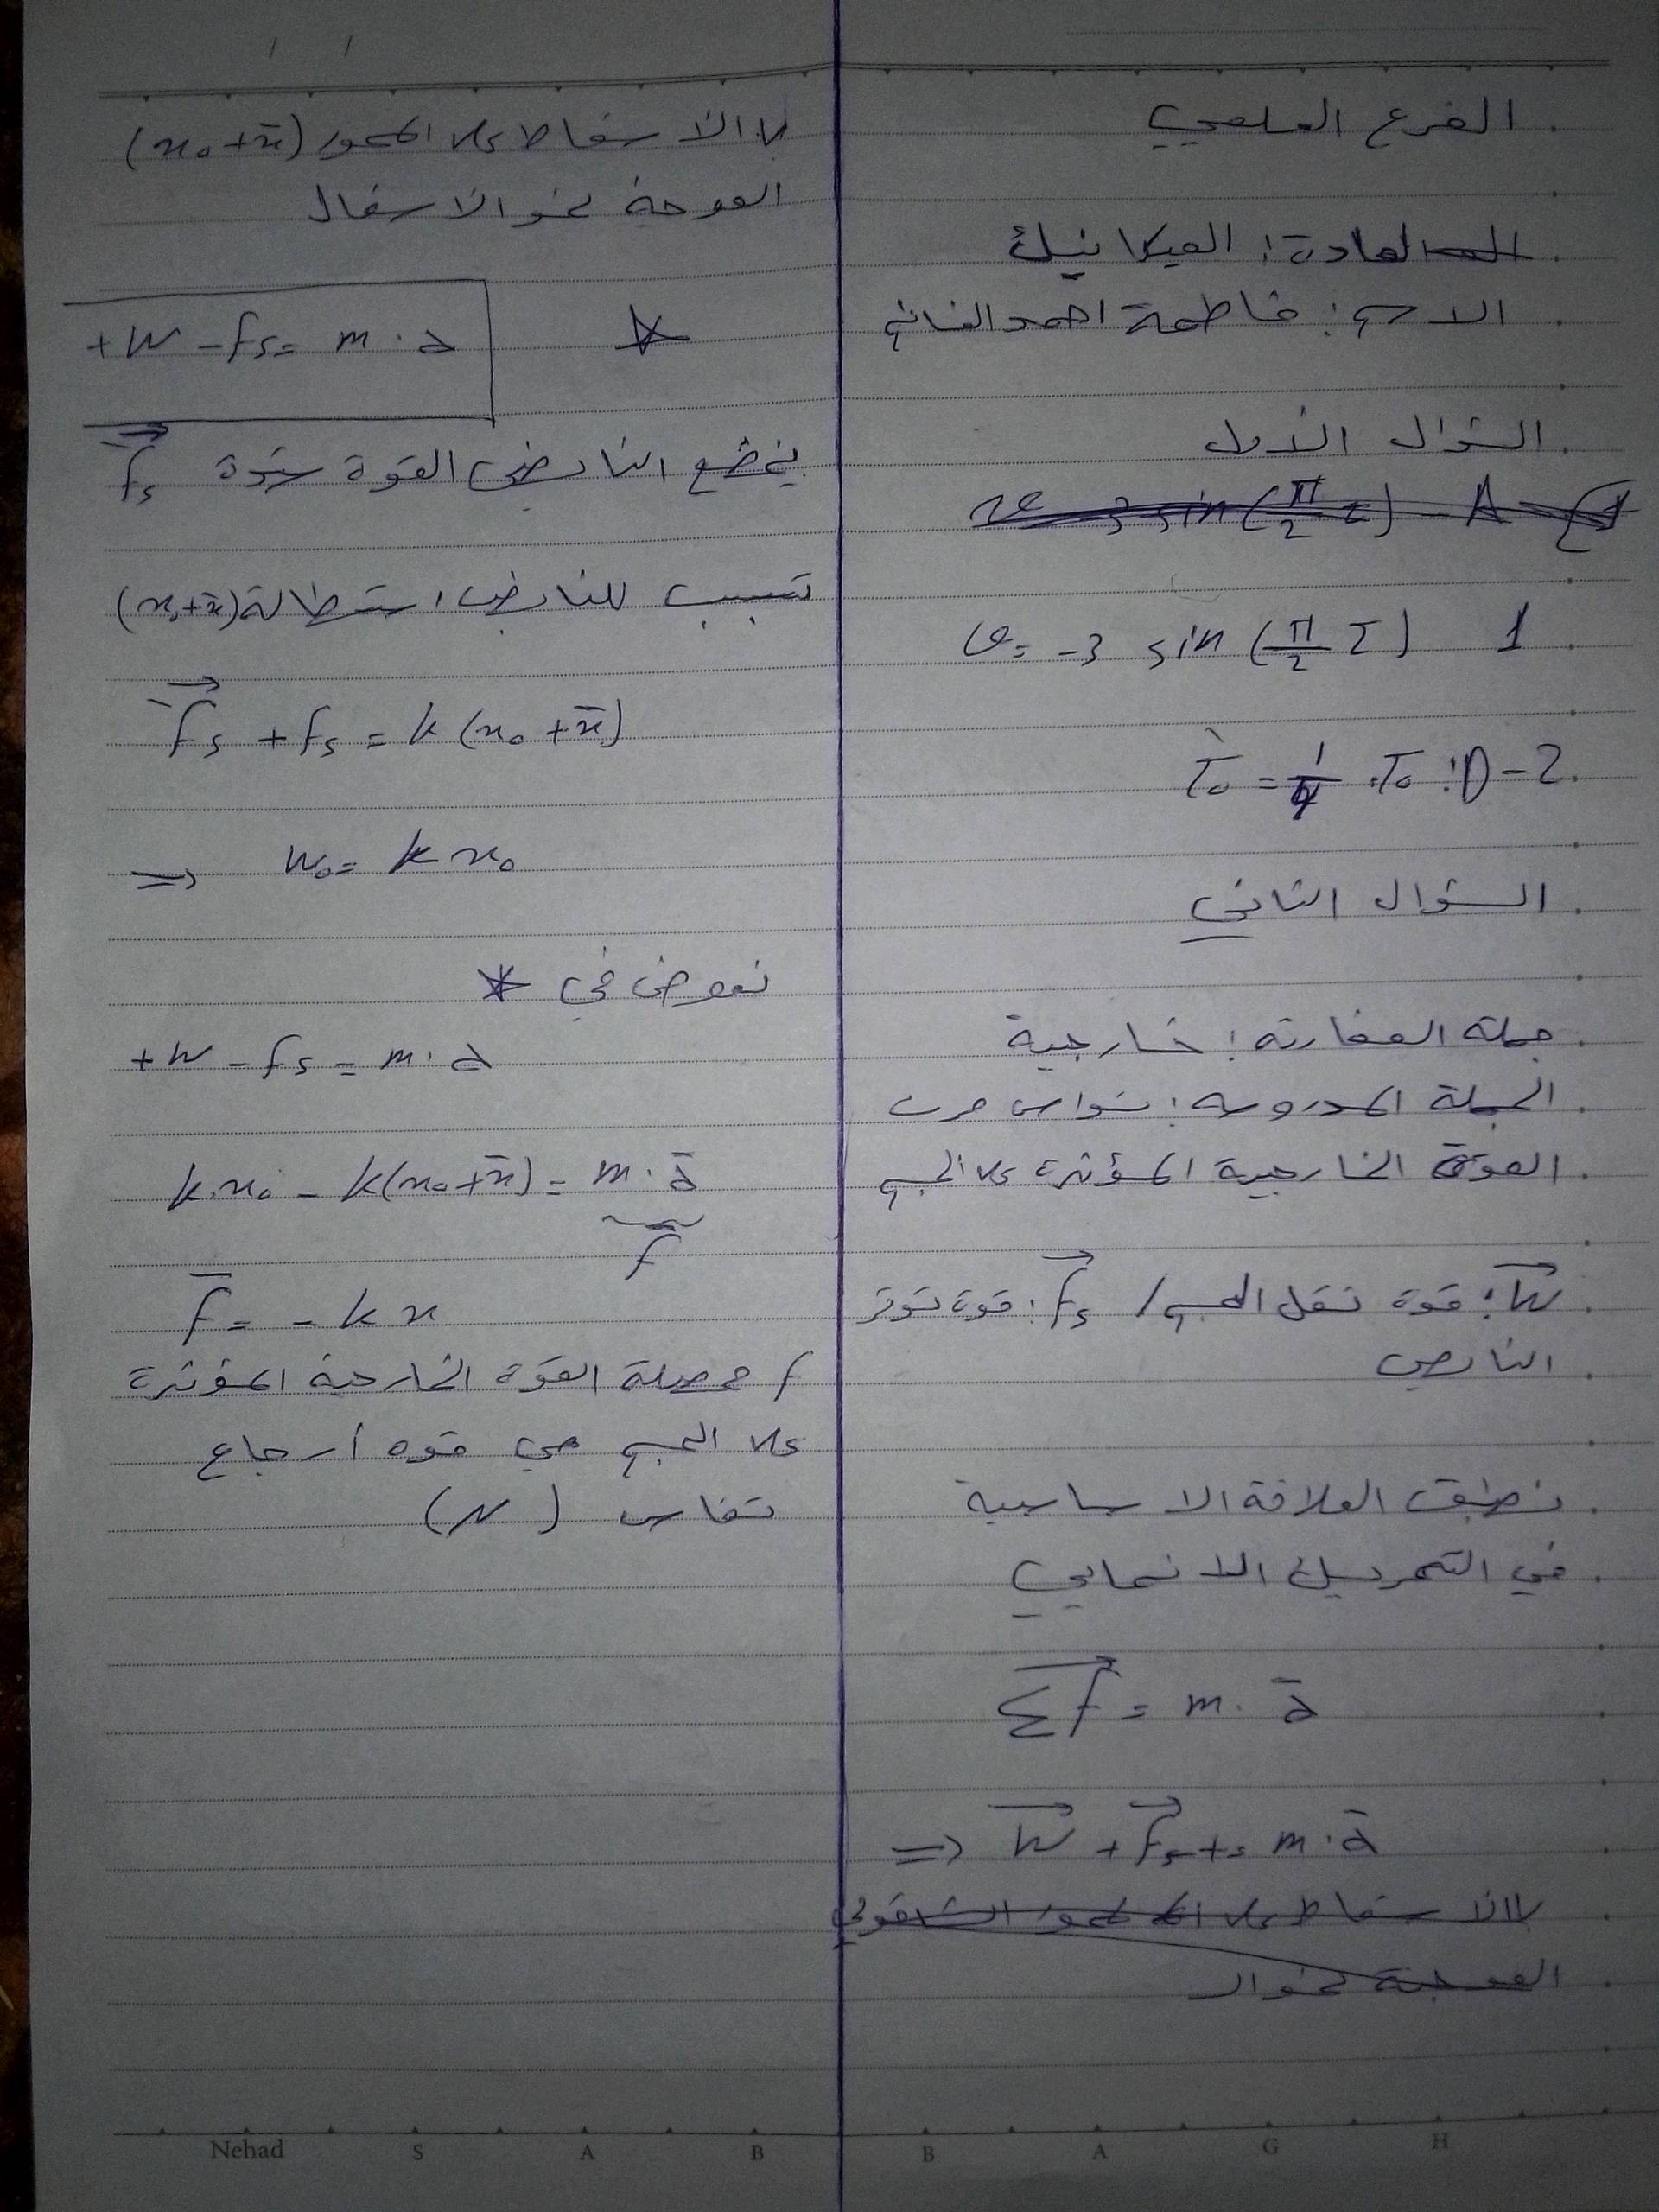 الفرع العلمي
المادة: الميكانيك
الاسم: فاطمة احمد
السؤال الأول
v = -3 sin (π/2 t) 1
T₀' = 1/4 T₀ :D - 2
السؤال الثاني
جملة المقارنة: خارجية
الجملة المدروسة: نواس مرن
القوة الخارجية المؤثرة على الجسم
W⃗: قوة ثقل الجسم / f⃗s: قوة توتر
النابض
نطبق العلاقة الاساسية
في التحريك الانسحابي
Σf⃗ = m . a̅
=> W⃗ + f⃗s + = m . a̅
بالاسقاط على المحور الشاقولي
الموجه نحو ال
بالاسقاط على المحور (x₀+x̅)
الموجه نحو الاسفل
+W - fs = m . a *
يخضع النابض القوة شدة f⃗s'
تسبب للنابض استطالة (x₀+x̅)
f⃗s' + fs = k (x₀ + x̅)
=> W₀ = k x₀
نعوض في *
+W - fs = m . a
k.x₀ - k(x₀+x̅) = m . a̅
f̅
f̅ = - k x
f محصلة القوة الخارجية المؤثرة
على الجسم هي قوة أرجاع
تقاس (N)
Nehad S A B B A G H